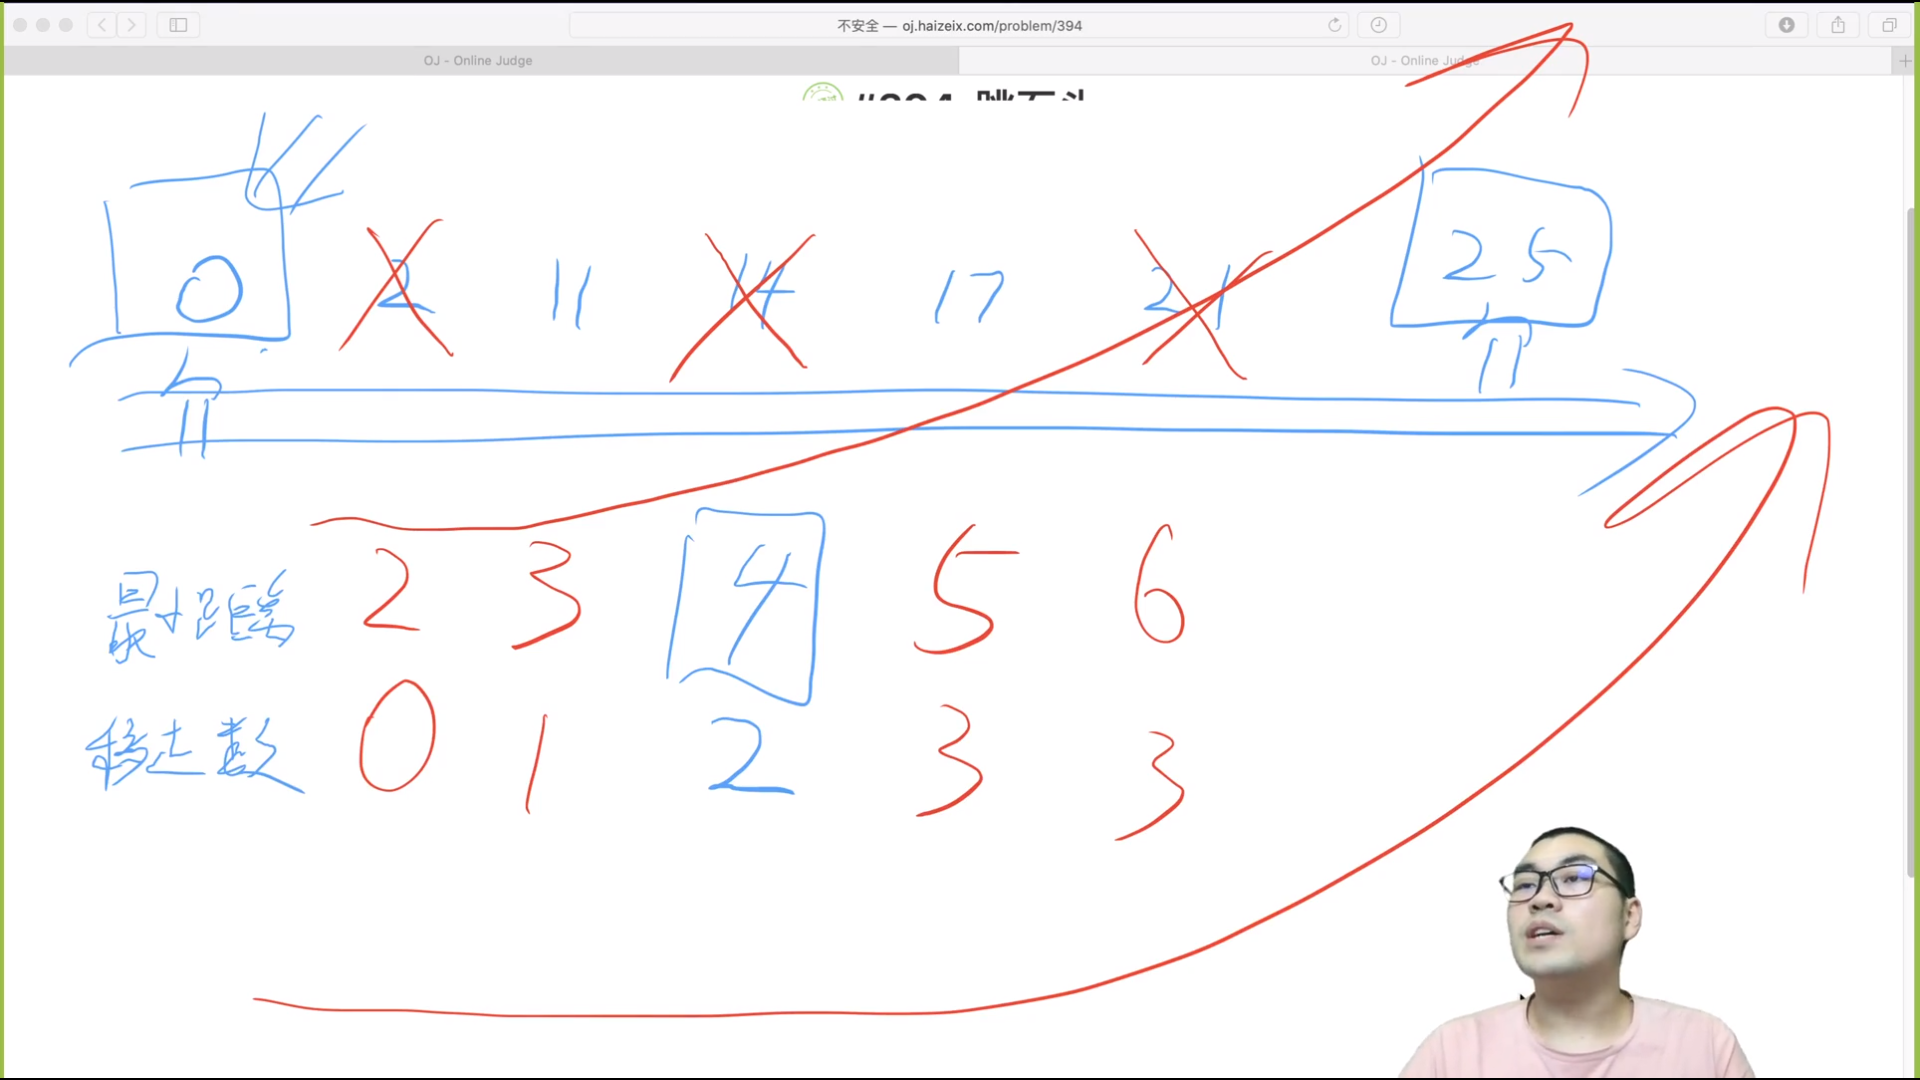 不安全 — oj.haizeix.com/problem/394
OJ - Online Judge
OJ - Online Judge
#394 跳石头
0 2 11 14 17 21 25
最小距离 2 3 4 5 6
移走数 0 1 2 3 3